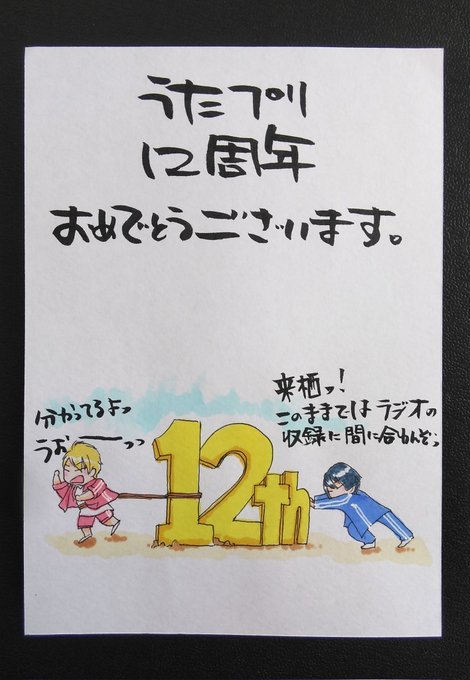 うたプリ
12周年
おめでとうございます。
来栖ッ!
このままではラジオの
収録に間に合わんぞっ
分かってるよッ
うおーーっっ
12th